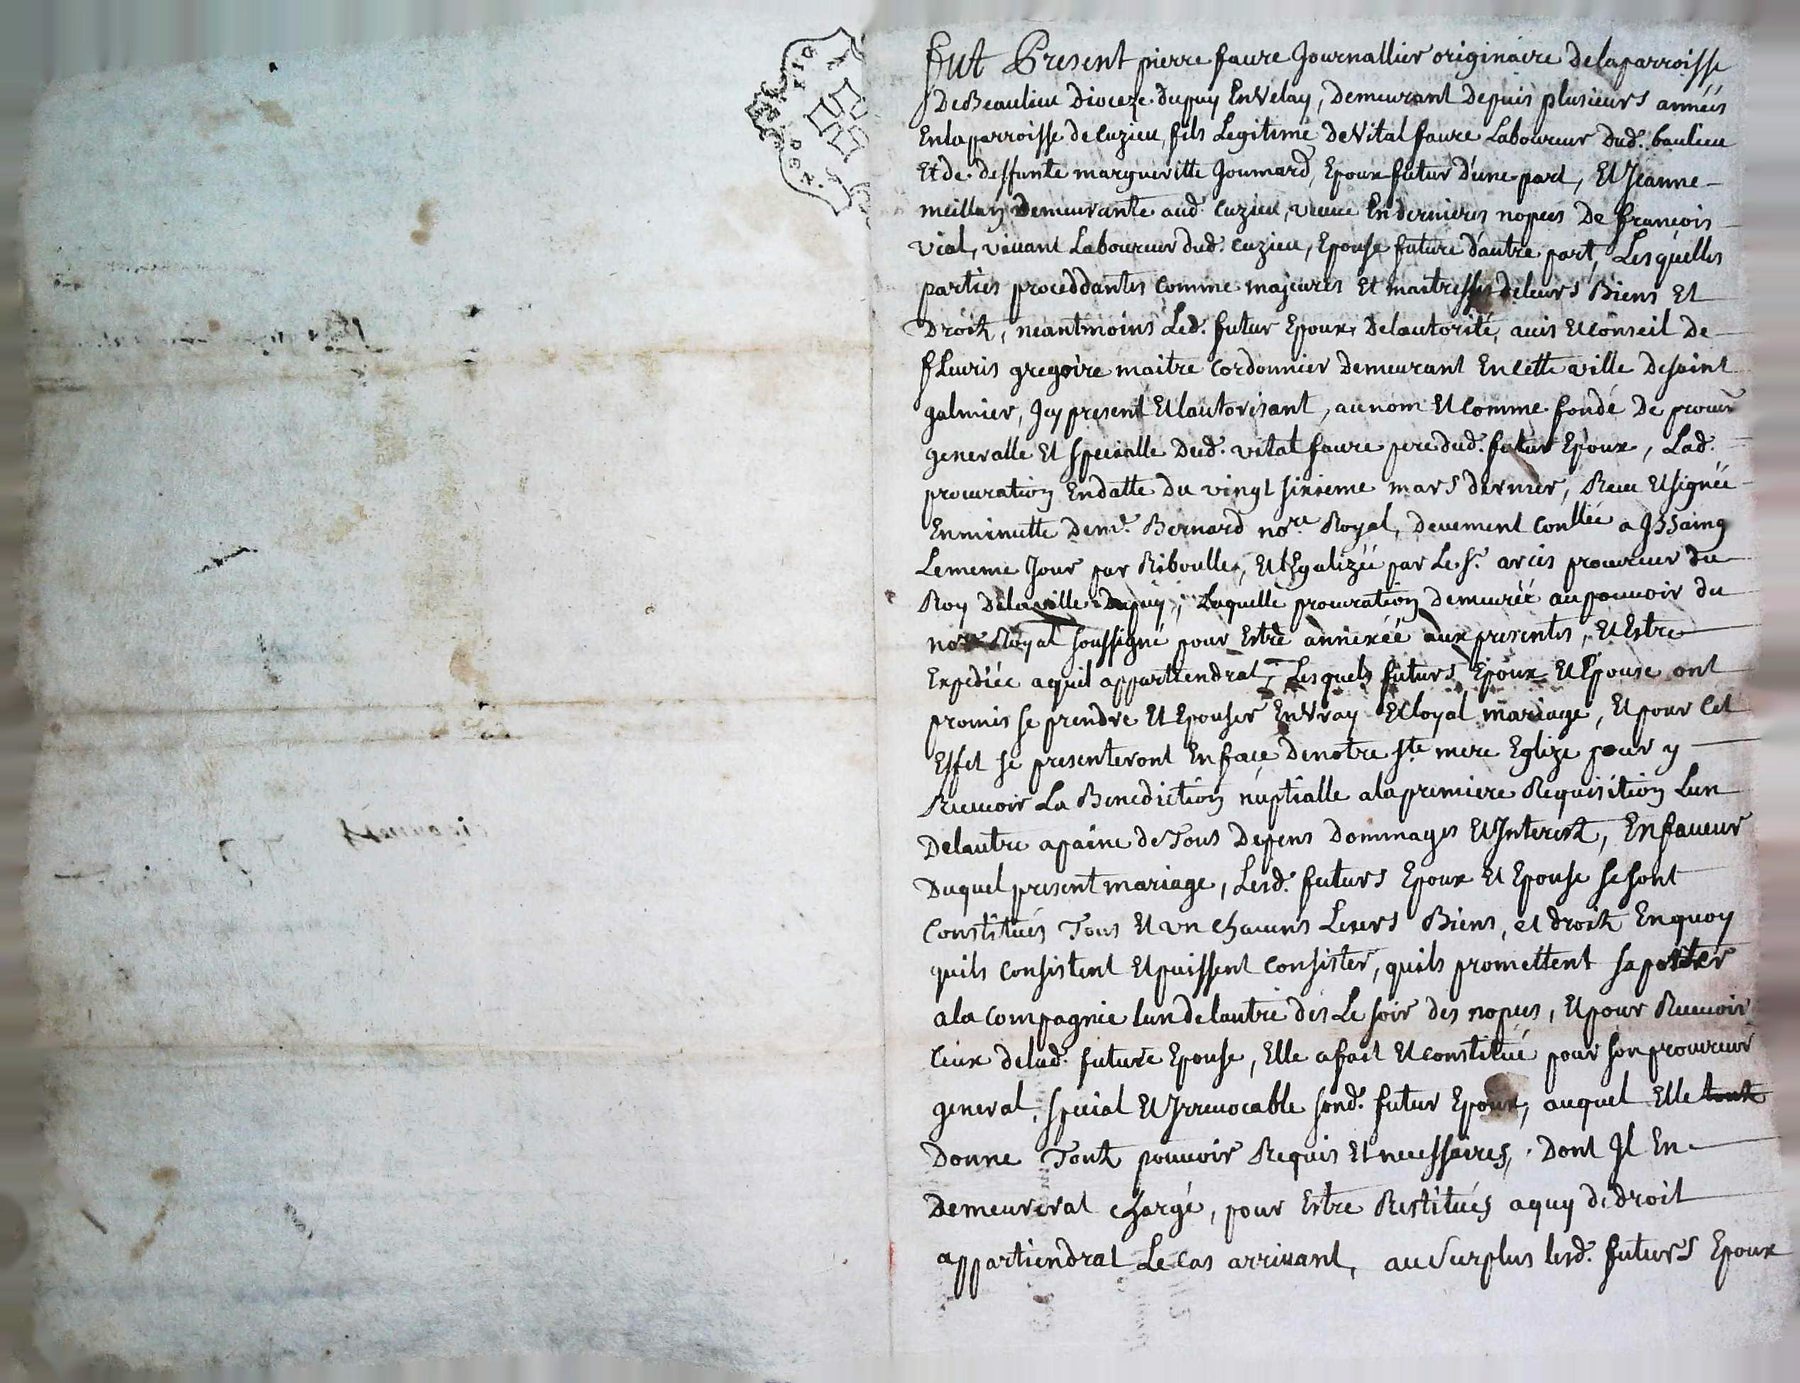 fut Present pierre faure Journallier originaire delaparroisse
DeBeaulieu Dioceze Dupuy EnVelay, Demeurant Depuis plusieurs années
Enlaparroisse de Cuzieu, fils Legitime De Vital faure Laboureur Dud. baulieu
Et de deffunte margueritte Joumard, Epoux futur D'une part, Et Jeanne
meillan Demeurante aud. Cuzieu, veuve En dernieres nopces De francois
vial, vivant Laboureur dud. Cuzieu, Epouse future d'autre part, Lesquelles
parties proceddantes Comme majeures Et maitresses deleurs Biens Et
Droitz, neantmoins Led. futur Epoux, Delautorité, avis Et Conseil De
fleuris gregoire maitre Cordonnier Demeurant En Cette ville De saint
galmier, Jcy present Et lautorisant, au nom Et Comme fondé De procur.
generalle Et specialle Dud. vital faure pere dud. futur Epoux, Lad.
procuration Endatte du vingt sixieme mars dernier, Receu Et signée
Enminutte Deme. Bernard nore. Royal, Devement Conllée a Jssaing
Lememe Jour par Riboulle, Et Legalizée par Le Sr. arcis procureur du
Roy Delaville Dupuy, Laquelle procuration demeurée aupouvoir du
nore Royal soussigné pour Estre annexéé aux presentes, Et Estre
Expediéé aquil appartiendrat, Lesquels futurs Epoux Et Epouse ont
promis se prendre Et Epouser EnVray Et loyal mariage, Et pour Cet
Effet se presenteront En face Denotre Ste mere Eglize pour y
Recevoir La Benediction nuptialle alapremiere Requisition Lun
Delautre apaine de Tous Depens Dommages Et Interest, Enfaveur
Duquel present mariage, Lesd. futurs Epoux Et Epouse se sont
Constitués Tous Et vn chacuns Leurs Biens, et droitz Enquoy
quils Consistent Et puissent Consister, quils promettent saporter
ala Compagnie lun delautre des Le soir des nopces, Et pour Recevoir
Ceux delad. future Epouse, Elle afait Et constitué pour son procureur
general, special Et Jrrevocable sond. futur Epoux, auquel Elle toutz
Donne Toutz pouvoir Requis Et necessaires, Dont Jl En
Demeurerat chargé, pour Estre Restitués aquy de droit
appartiendrat Le Cas arrivant, au Surplus lesd. futurs Epoux